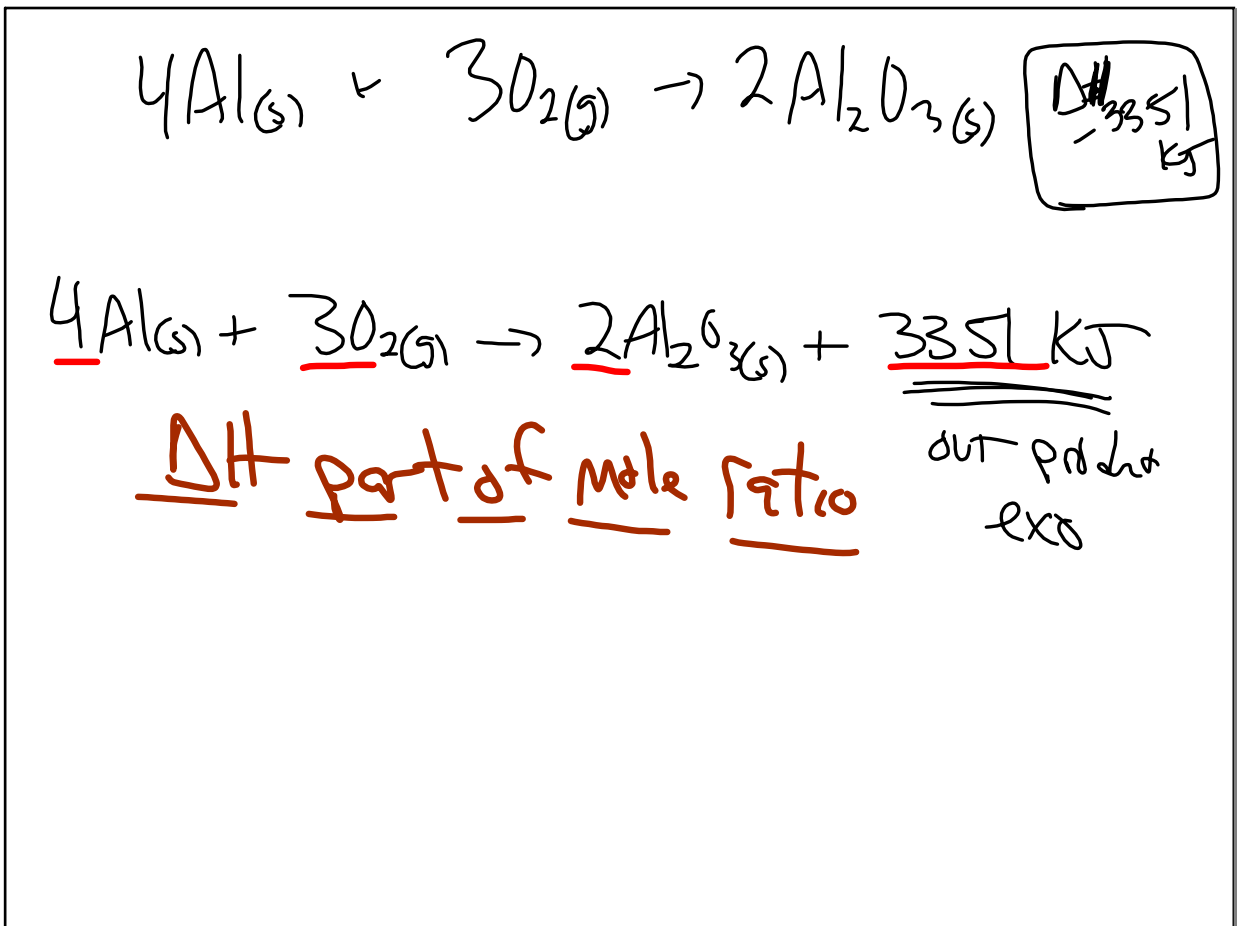 4Al(s) + 3O₂(g) → 2Al₂O₃(s) ΔH -3351 KJ
4Al(s) + 3O₂(g) → 2Al₂O₃(s) + 3351 KJ
ΔH part of mole ratio
out product
exo